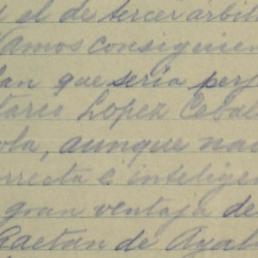 y el de tercer arbit
Vamos consiguien
lan que sería perf
tario Lopez Cebal
ola, aunque nac
orrecta e intelige
gran ventaja de
Gaetan de Ayal